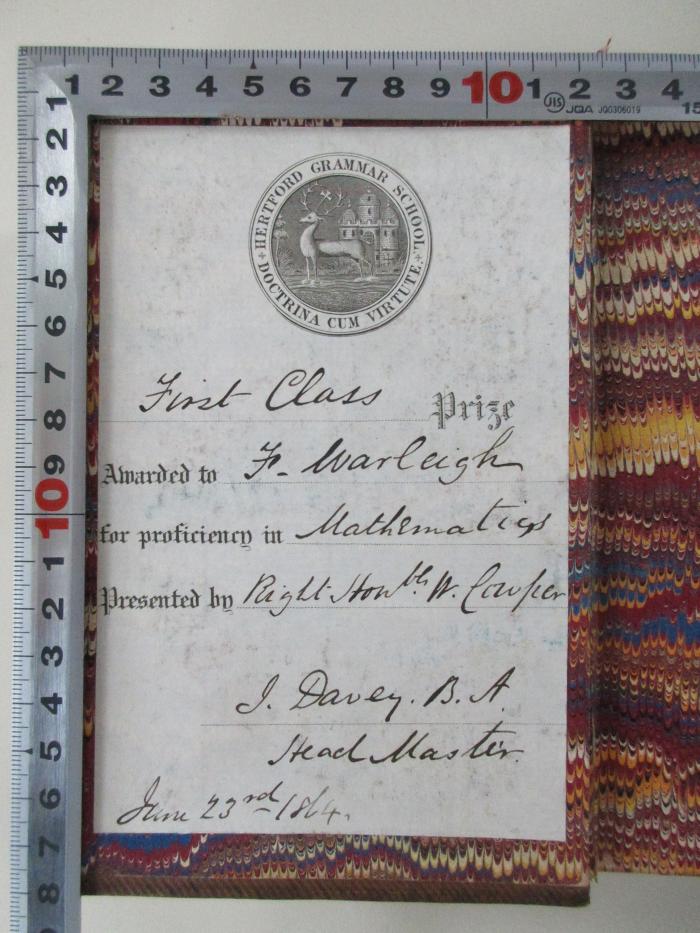 1 2 3 4 5 6 7 8 9 10 1 2 3 4 15
JIS JQA JQ0306019
1 2 3 4 5 6 7 8 9 10 1 2 3 4 5 6 7 8
HERTFORD GRAMMAR SCHOOL
DOCTRINA CUM VIRTUTE.
First Class Prize
Awarded to F. Warleigh
for proficiency in Mathematics
Presented by Right Honble W. Cowper
J. Davey. B. A.
Head Master
June 23rd 1864.